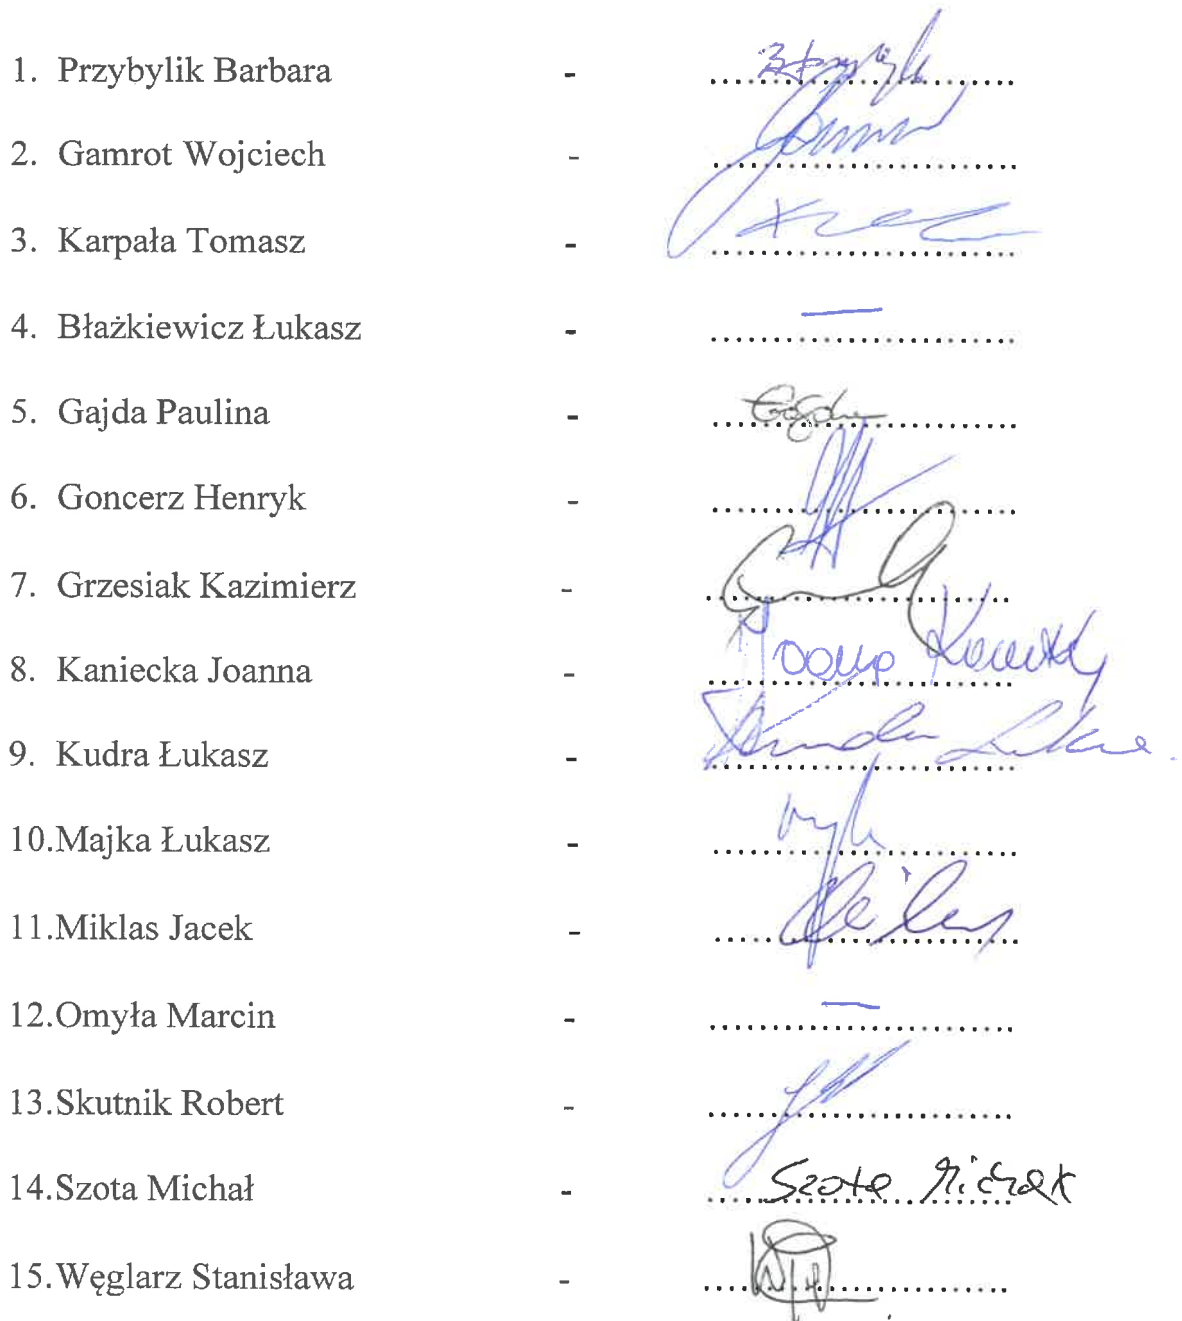 1. Przybylik Barbara - ........................
2. Gamrot Wojciech - ........................
3. Karpała Tomasz - ........................
4. Błażkiewicz Łukasz - ........................
5. Gajda Paulina - ........................ Gajda
6. Goncerz Henryk - ........................
7. Grzesiak Kazimierz - ........................
8. Kaniecka Joanna - ........................
9. Kudra Łukasz - ........................
10.Majka Łukasz - ........................
11.Miklas Jacek - ........................
12.Omyła Marcin - ........................
13.Skutnik Robert - ........................
14.Szota Michał - ........................ Szota Michał
15.Węglarz Stanisława - ........................